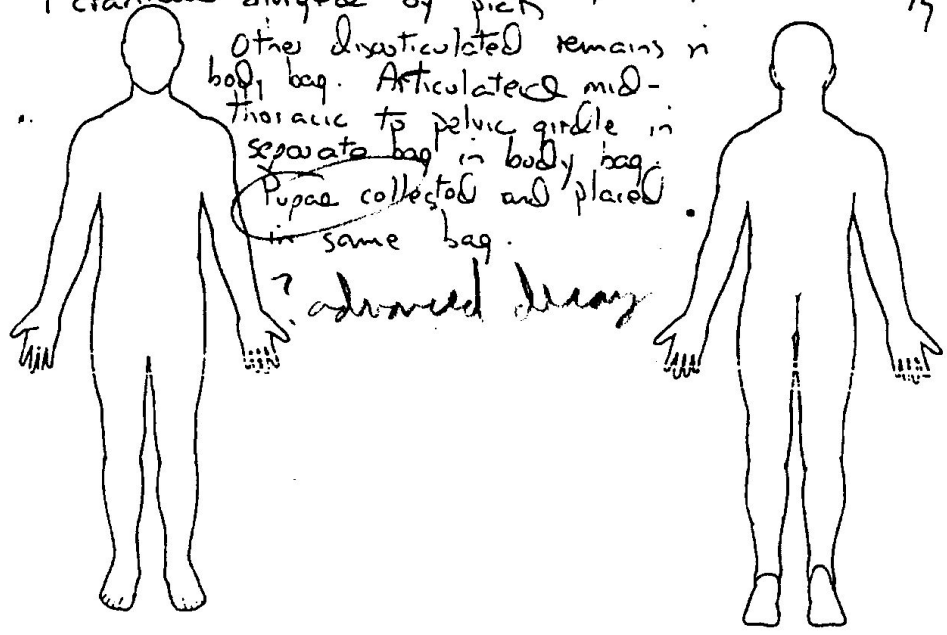 by pick
Other disarticulated remains in
body bag. Articulated mid-
thoracic to pelvic girdle in
separate bag in body bag.
Pupae collected and placed
in same bag.
? advanced decay